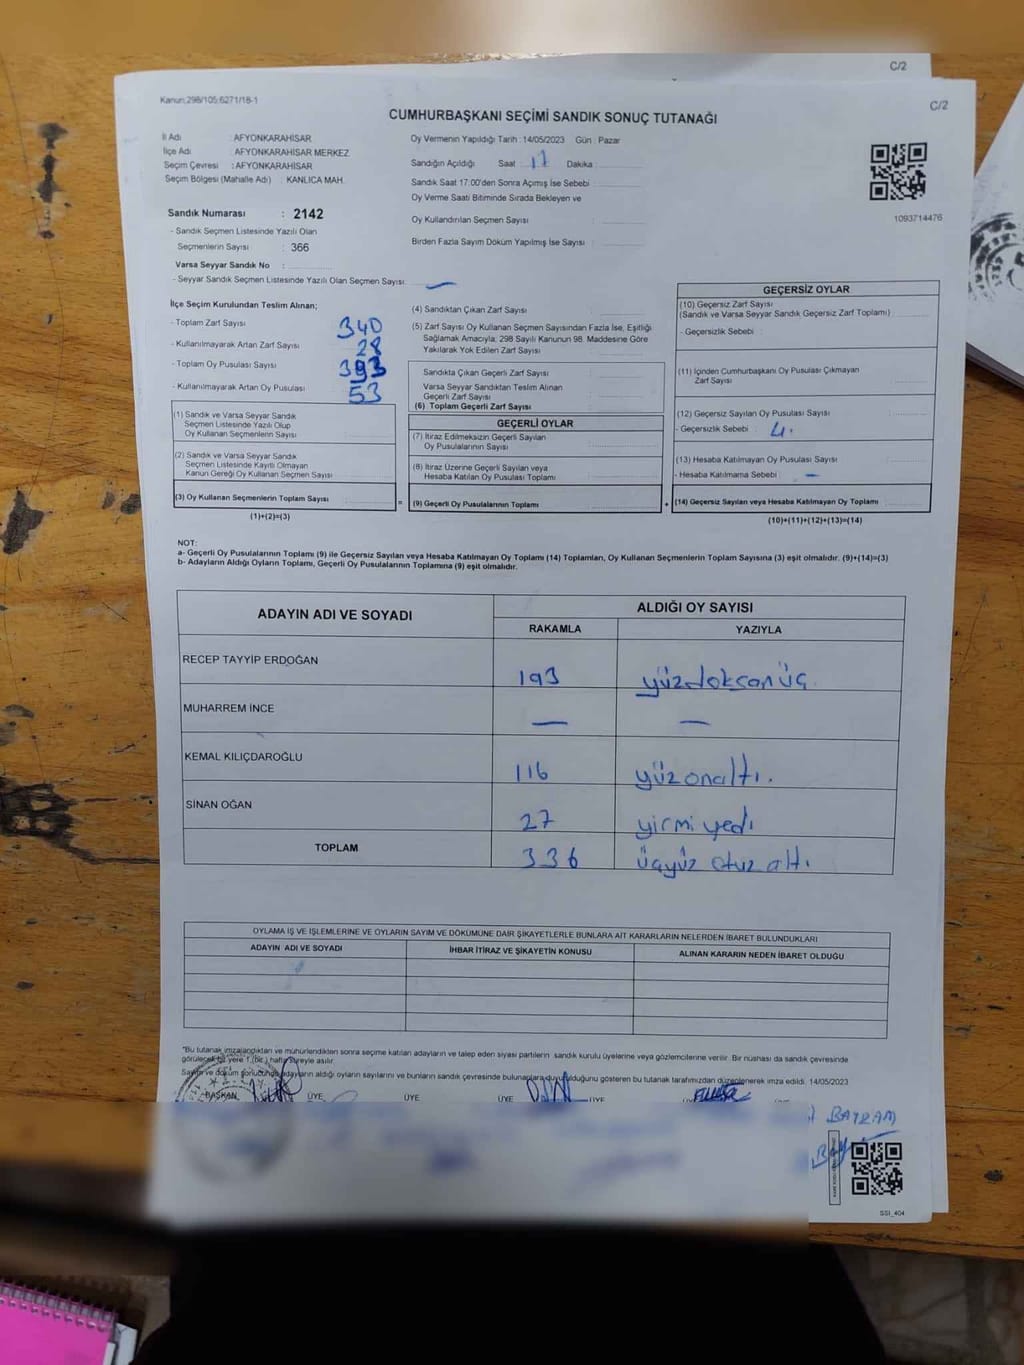 C/2
Kanun;298/105;6271/18-1
C/2
CUMHURBAŞKANI SEÇİMİ SANDIK SONUÇ TUTANAĞI
İl Adı : AFYONKARAHİSAR
İlçe Adı : AFYONKARAHİSAR MERKEZ
Seçim Çevresi : AFYONKARAHİSAR
Seçim Bölgesi (Mahalle Adı) : KANLICA MAH.
Oy Vermenin Yapıldığı Tarih : 14/05/2023 Gün : Pazar
Sandığın Açıldığı Saat : 17 Dakika :
Sandık Saat 17:00'den Sonra Açımış İse Sebebi :
Oy Verme Saati Bitiminde Sırada Bekleyen ve
Oy Kullandırılan Seçmen Sayısı :
Birden Fazla Sayım Döküm Yapılmış İse Sayısı :
1093714476
Sandık Numarası : 2142
- Sandık Seçmen Listesinde Yazılı Olan
Seçmenlerin Sayısı : 366
Varsa Seyyar Sandık No :
- Seyyar Sandık Seçmen Listesinde Yazılı Olan Seçmen Sayısı: —
İlçe Seçim Kurulundan Teslim Alınan;
- Toplam Zarf Sayısı 340
- Kullanılmayarak Artan Zarf Sayısı 28
- Toplam Oy Pusulası Sayısı 393
- Kullanılmayarak Artan Oy Pusulası 53
(1) Sandık ve Varsa Seyyar Sandık
Seçmen Listesinde Yazılı Olup
Oy Kullanan Seçmenlerin Sayısı
(2) Sandık ve Varsa Seyyar Sandık
Seçmen Listesinde Kayıtlı Olmayan
Kanun Gereği Oy Kullanan Seçmen Sayısı
(3) Oy Kullanan Seçmenlerin Toplam Sayısı
(1)+(2)=(3)
=
(4) Sandıktan Çıkan Zarf Sayısı :
(5) Zarf Sayısı Oy Kullanan Seçmen Sayısından Fazla İse, Eşitliği
Sağlamak Amacıyla; 298 Sayılı Kanunun 98. Maddesine Göre
Yakılarak Yok Edilen Zarf Sayısı :
Sandıkta Çıkan Geçerli Zarf Sayısı :
Varsa Seyyar Sandıktan Teslim Alınan
Geçerli Zarf Sayısı
(6) Toplam Geçerli Zarf Sayısı
GEÇERLİ OYLAR
(7) İtiraz Edilmeksizin Geçerli Sayılan
Oy Pusulalarının Sayısı
(8) İtiraz Üzerine Geçerli Sayılan veya
Hesaba Katılan Oy Pusulası Toplamı
(9) Geçerli Oy Pusulalarının Toplamı
+
GEÇERSİZ OYLAR
(10) Geçersiz Zarf Sayısı
(Sandık ve Varsa Seyyar Sandık Geçersiz Zarf Toplamı)
- Geçersizlik Sebebi :
(11) İçinden Cumhurbaşkanı Oy Pusulası Çıkmayan
Zarf Sayısı
(12) Geçersiz Sayılan Oy Pusulası Sayısı
- Geçersizlik Sebebi : 4.
(13) Hesaba Katılmayan Oy Pusulası Sayısı
- Hesaba Katılmama Sebebi : —
(14) Geçersiz Sayılan veya Hesaba Katılmayan Oy Toplamı
(10)+(11)+(12)+(13)=(14)
NOT:
a- Geçerli Oy Pusulalarının Toplamı (9) ile Geçersiz Sayılan veya Hesaba Katılmayan Oy Toplamı (14) Toplamları, Oy Kullanan Seçmenlerin Toplam Sayısına (3) eşit olmalıdır. (9)+(14)=(3)
b- Adayların Aldığı Oyların Toplamı, Geçerli Oy Pusulalarının Toplamına (9) eşit olmalıdır.
ADAYIN ADI VE SOYADI ALDIĞI OY SAYISI
RAKAMLA YAZIYLA
RECEP TAYYİP ERDOĞAN 193 yüzdoksanüç
MUHARREM İNCE — —
KEMAL KILIÇDAROĞLU 116 yüzonaltı.
SİNAN OĞAN 27 yirmiyedi
TOPLAM 336 üçyüz otuz altı
OYLAMA İŞ VE İŞLEMLERİNE VE OYLARIN SAYIM VE DÖKÜMÜNE DAİR ŞİKAYETLERLE BUNLARA AİT KARARLARIN NELERDEN İBARET BULUNDUKLARI
ADAYIN ADI VE SOYADI İHBAR İTİRAZ VE ŞİKAYETİN KONUSU ALINAN KARARIN NEDEN İBARET OLDUĞU
*Bu tutanak imzalandıktan ve mühürlendikten sonra seçime katılan adayların ve talep eden siyasi partilerin sandık kurulu üyelerine veya gözlemcilerine verilir. Bir nüshası da sandık çevresinde
görülecek bir yere 1 (bir) hafta süreyle asılır.
Sayım ve döküm sonucunda adayların aldığı oyların sayılarını ve bunların sandık çevresinde bulunanlara duyurulduğunu gösteren bu tutanak tarafımızdan düzenlenerek imza edildi. 14/05/2023
BAŞKAN ÜYE ÜYE ÜYE ÜYE
BAYRAM
SSI_404